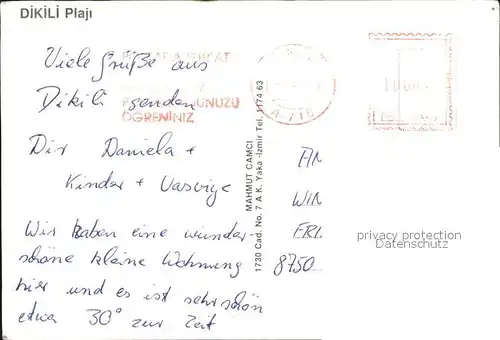 DİKİLİ Plajı
Viele Grüße aus
Dikili senden
Dir Daniela +
Kinder +
Wir haben eine wunder-
schöne kleine Wohnung
hier und es ist sehr schön
etwa 30° zur Zeit
ÖĞRENİNİZ
MAHMUT CAMCI
1730 Cad. No. 7 A K. Yaka-İzmir Tel. 1174 63
AN
WIN
FRI
8750
privacy protection
Datenschutz